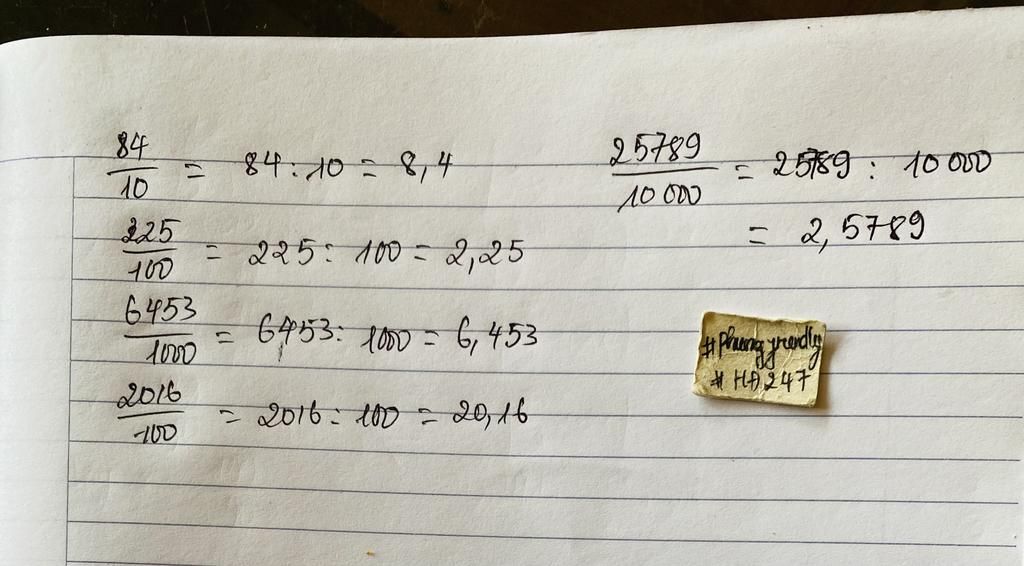 84/10 = 84 : 10 = 8,4
225/100 = 225 : 100 = 2,25
6453/1000 = 6453 : 1000 = 6,453
2016/100 = 2016 : 100 = 20,16
25789/10 000 = 25789 : 10 000
= 2,5789
# HA247